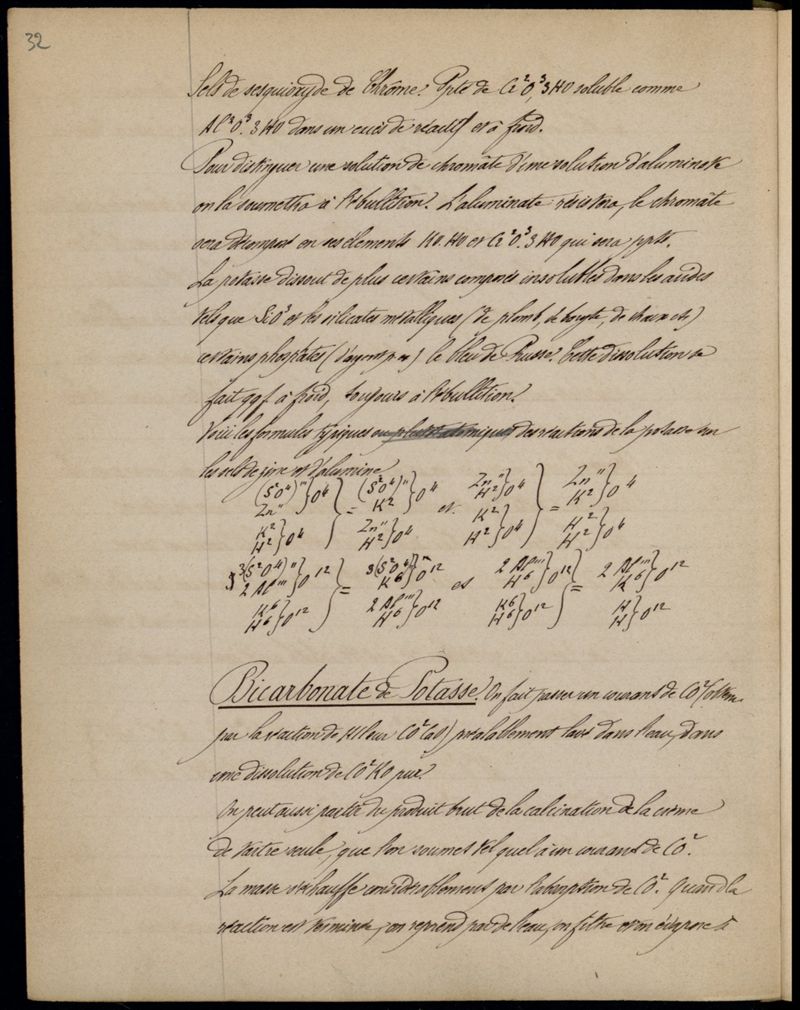 32
Sels de sesquioxyde de Chrôme. Ppté de Cr²O³, 3HO soluble comme
Al²O³. 3HO dans un excès de réactif et à froid.
Pour distinguer une solution de chromâte d'une solution d'aluminate
on la soumettra à l'ébullition. L'aluminate résistera, le chromâte
sera décomposé en ses éléments KO.HO et Cr²O³.3HO qui sera ppté.
La potasse dissout de plus certains composés insolubles dans les acides
tels que SiO³ et les silicates métalliques (de plomb, de baryte, de chaux etc)
certains phosphates (d'argent p. ex) le bleu de Prusse. Cette dissolution se
fait qqf. à froid, toujours à l'ébullition.
Voici les formules typiques des réactions de la potasse sur
les sels de zinc et d'alumine
(S²O⁴)" } O⁴ } = (S²O⁴)" } O⁴ et Zn" } O⁴ } = Zn" } O⁴
Zn" K² H² K²
K² } O⁴ Zn" } O⁴ K² } O⁴ H² } O⁴
H² H² H² H²
3(S²O⁴)" } O¹² } = 3(S²O⁴)" } O¹² et 2Al''' } O¹² } = 2Al''' } O¹²
2Al''' K⁶ H⁶ K⁶
K⁶ } O¹² 2Al''' } O¹² K⁶ } O¹² H } O¹²
H⁶ H⁶ H⁶ H
Bicarbonate de Potasse. On fait passer un courant de CO² (obtenu
par la réaction de HCl sur CO²CaO) préalablement lavé dans l'eau, dans
une dissolution de CO²KO pur.
On peut aussi partir du produit brut de la calcination de la crème
de tartre seule, que l'on soumet tel quel à un courant de CO².
La masse s'échauffe considérablement par l'absorption de CO². Quand la
réaction est terminée, on reprend par de l'eau, on filtre et on évapore à